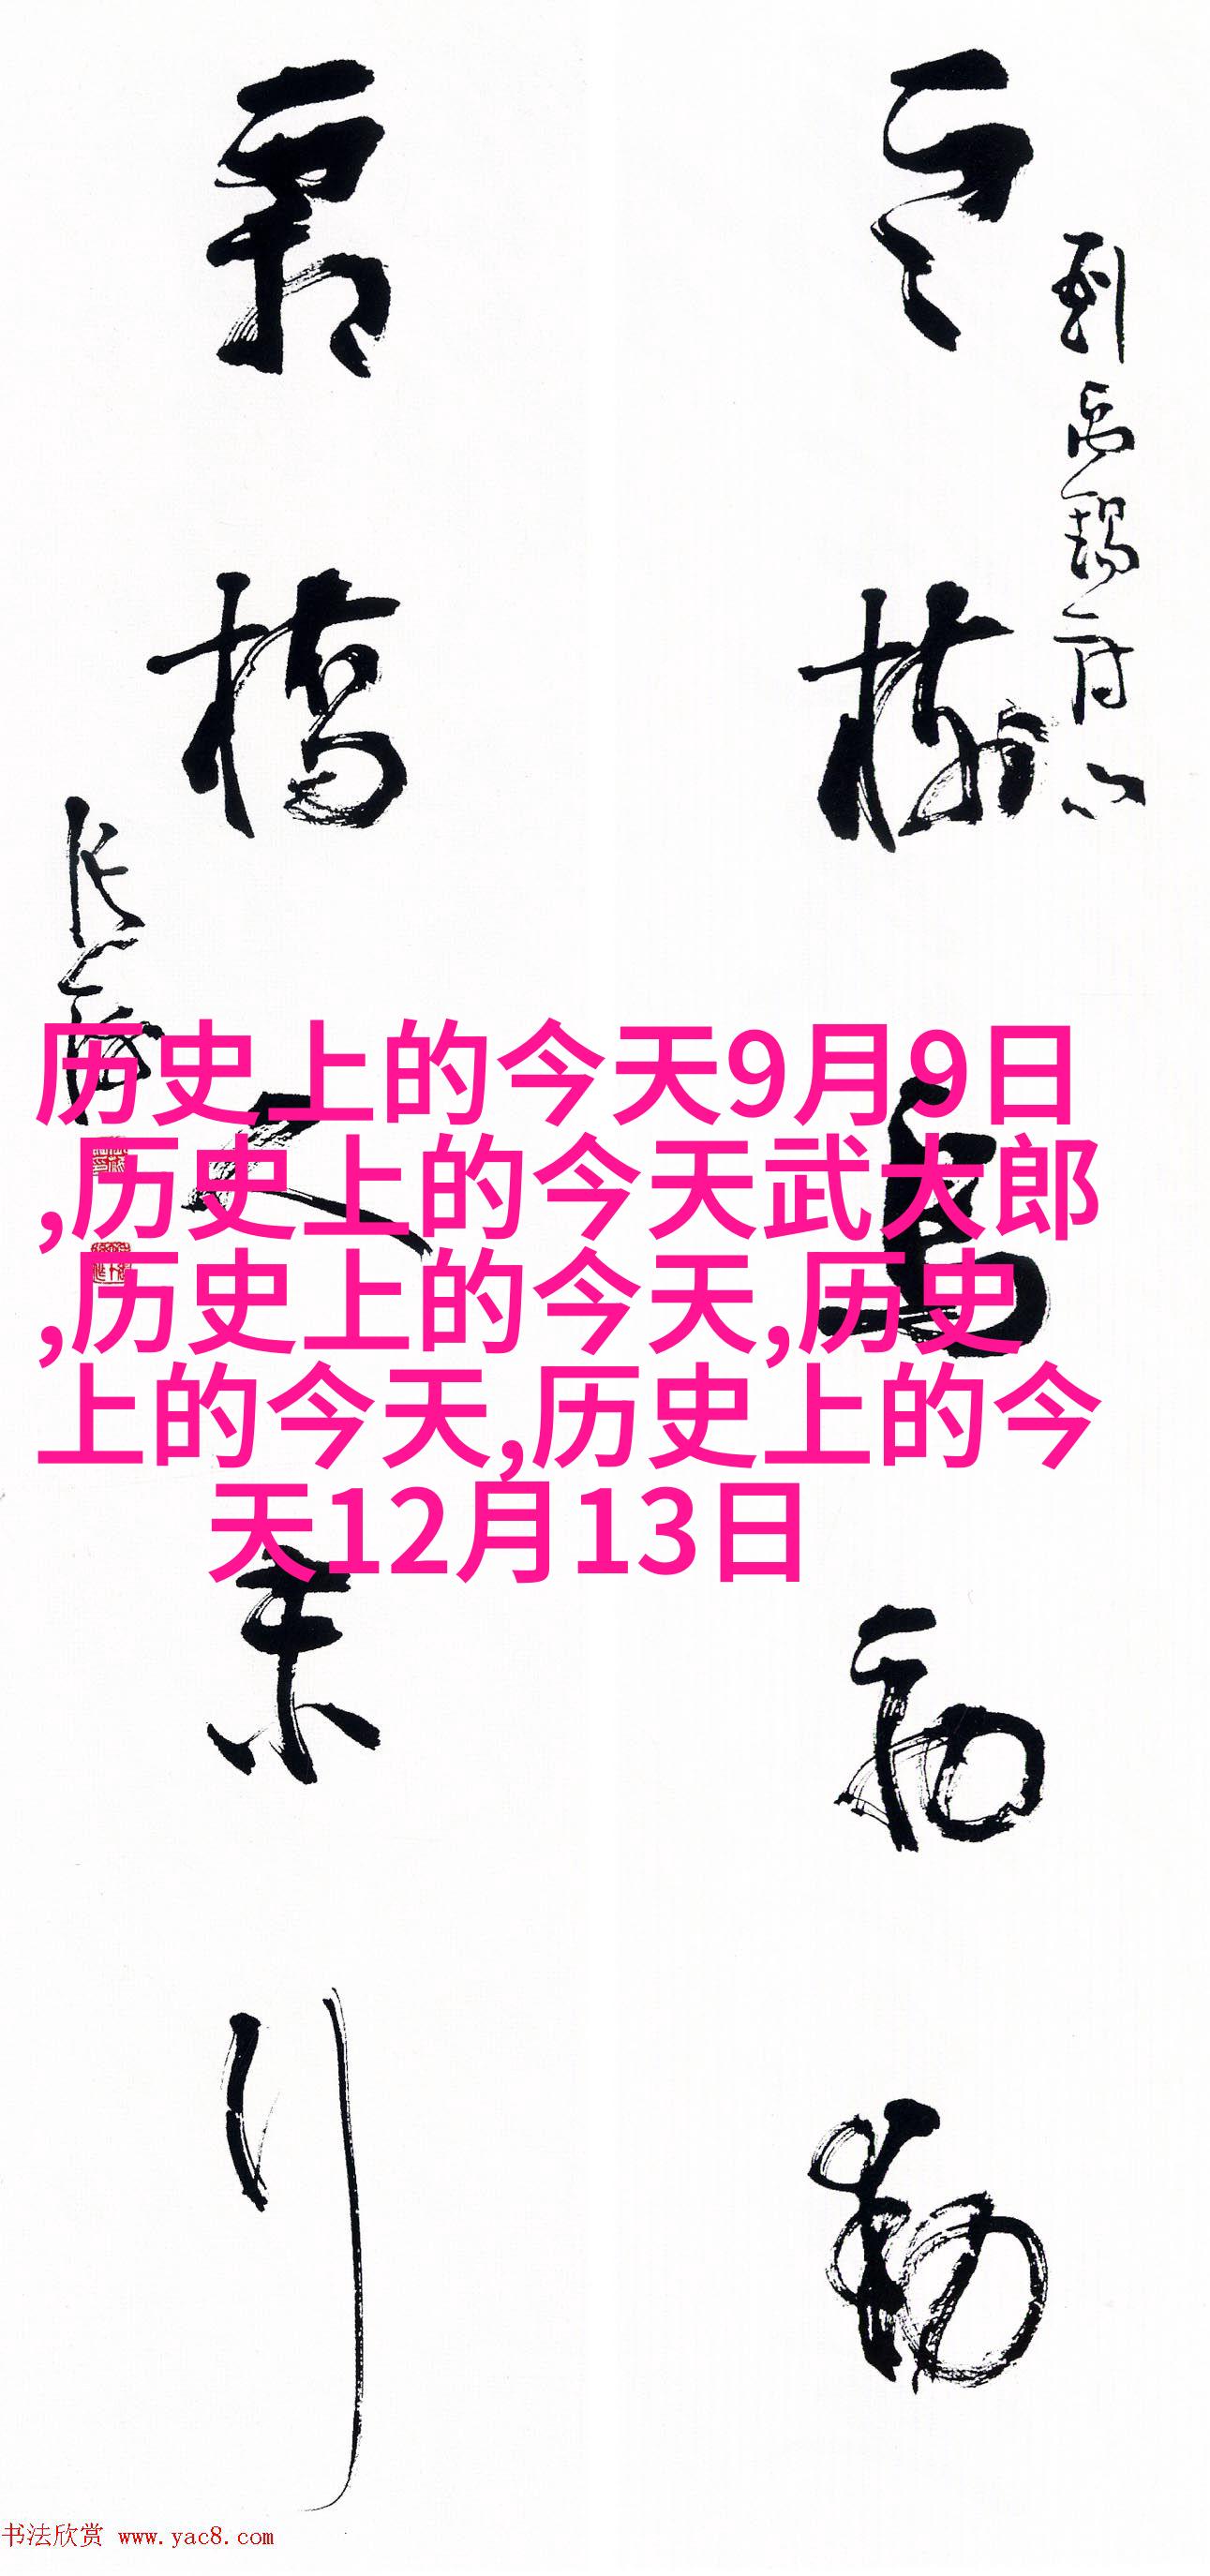 寒樹鳥初動
劉禹錫
霜橋人未行
历史上的今天9月9日
,历史上的今天武大郎
,历史上的今天,历史
上的今天,历史上的今
天12月13日
书法欣赏 www.yac8.com